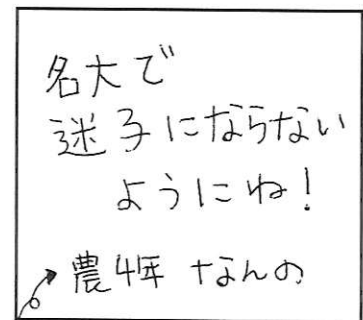 名大で
迷子にならない
ようにね!
農4年 なんの